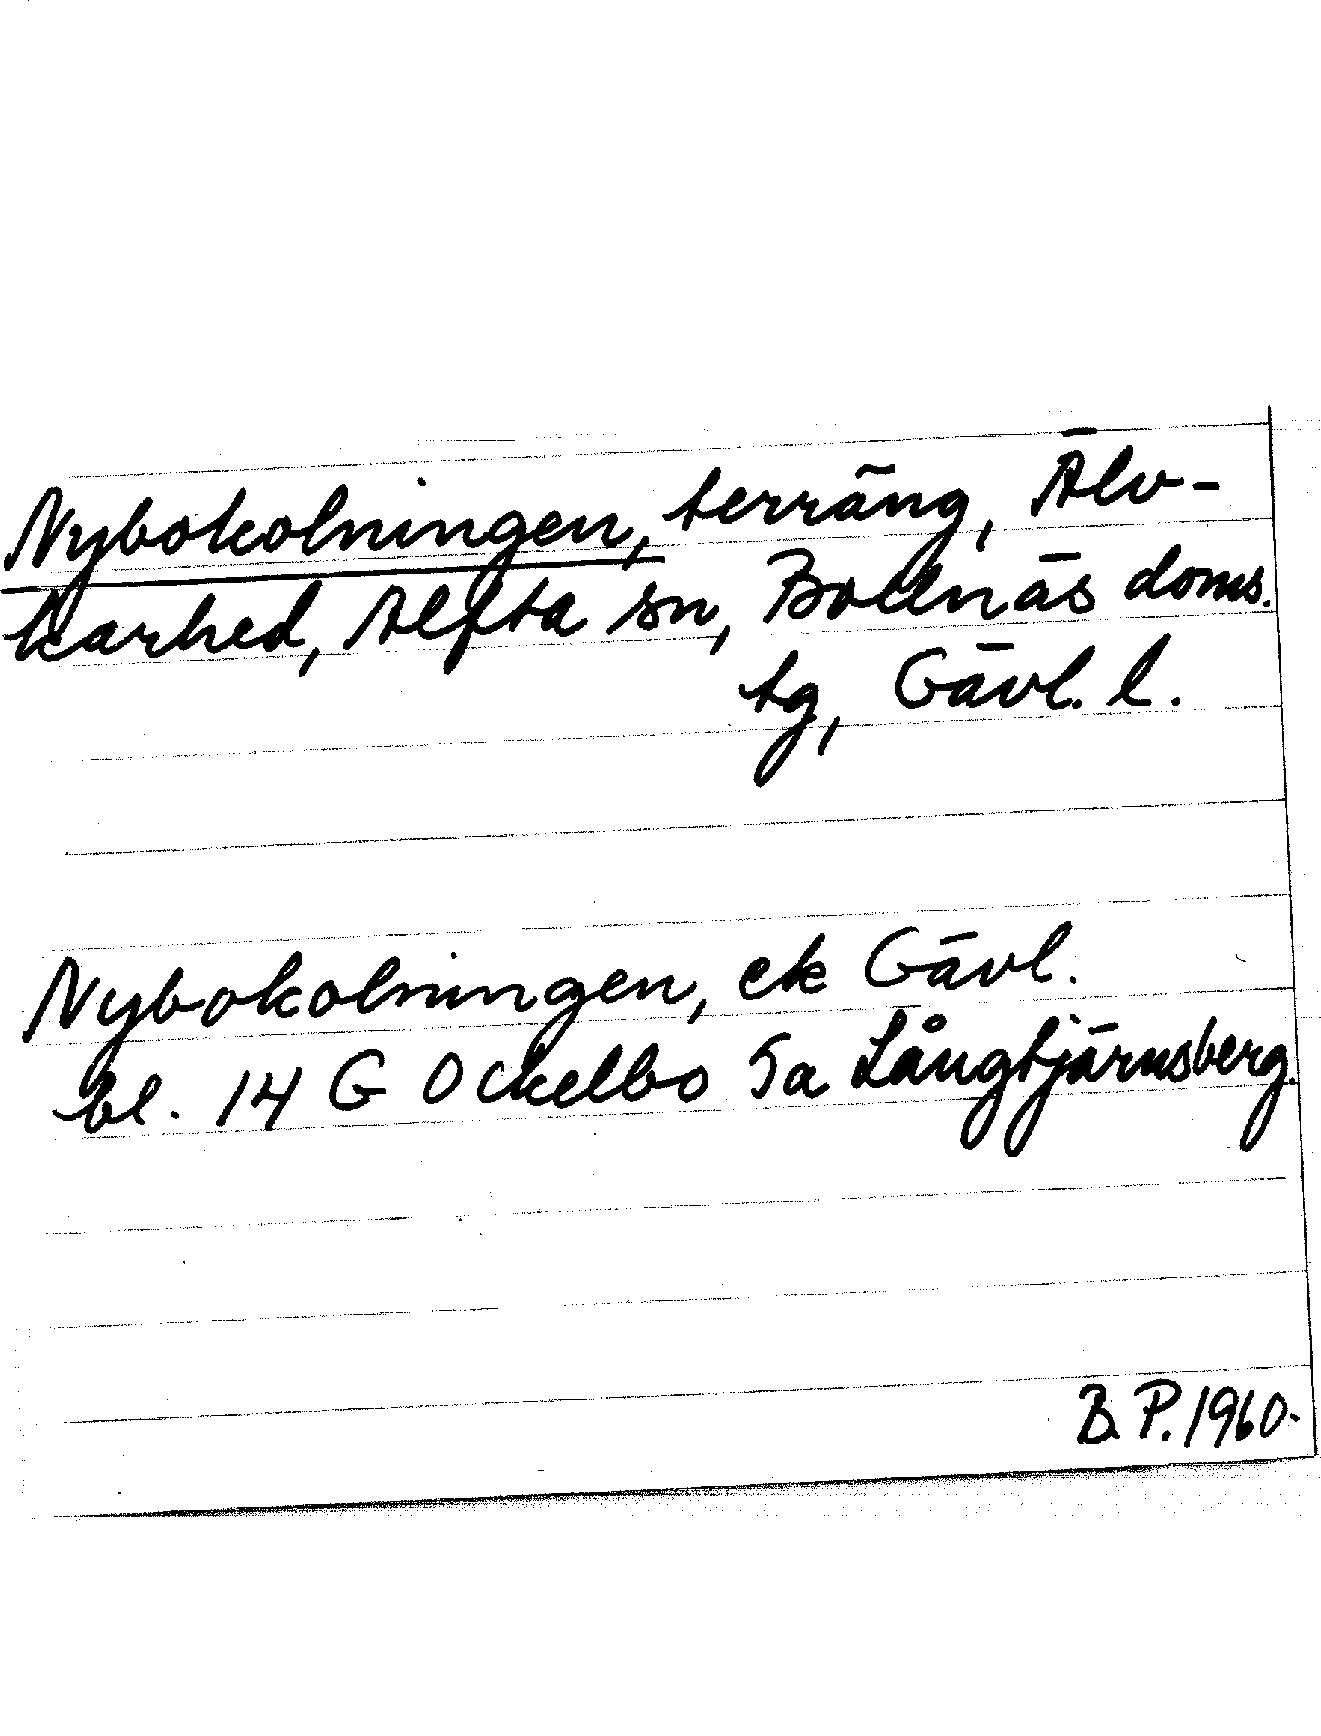 Nybokolningen, terräng, Älv-
karhed, Alfta sn, Bollnäs doms.
tg, Gävl. l.
Nybokolningen, ek Gävl.
bl. 14 G Ockelbo 5a Långtjärnsberg.
B.P. 1960.